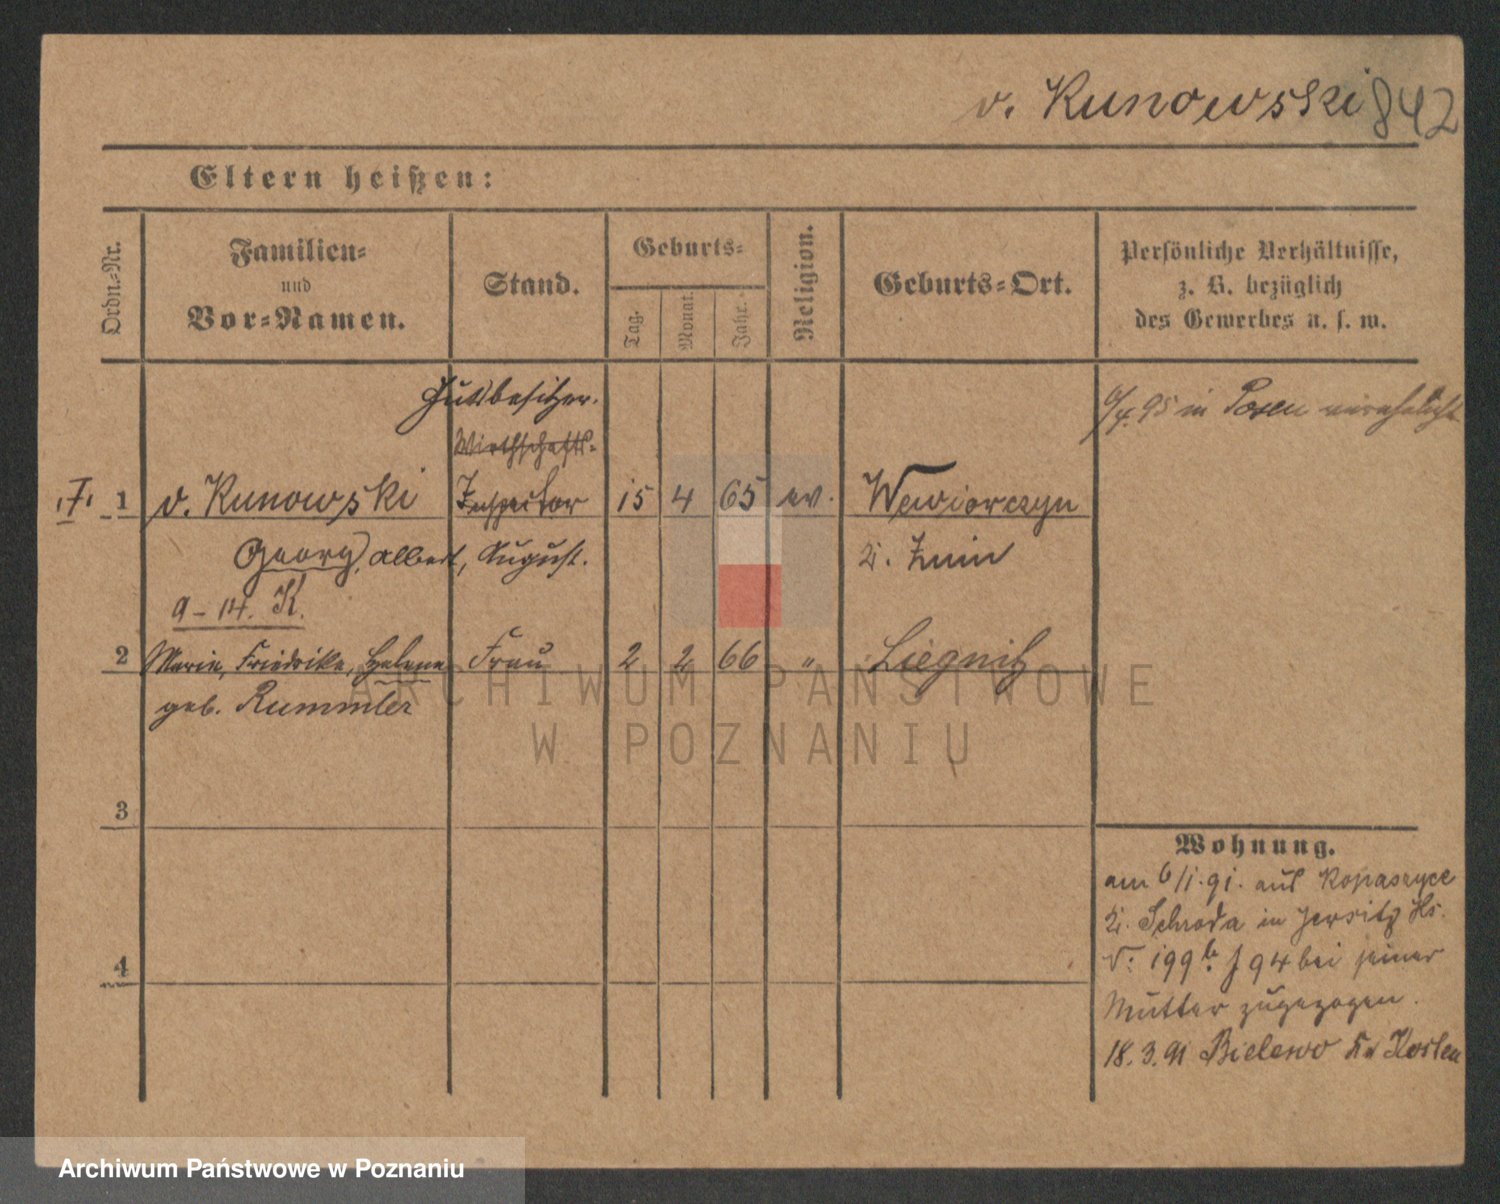 v. Kunowski 842
Eltern heißen:
Ordn.-Nr.
Familien-
und
Vor-Namen.
Stand.
Geburts-
Tag.
Monat.
Jahr.
Religion.
Geburts-Ort.
Persönliche Verhältnisse,
z. B. bezüglich
des Gewerbes u. s. w.
Gutsbesitzer.
Wirthschafts-
1 v. Kunowski Inspector 15 4 65 ev. Wawiorczyn
Georg, Albert, August. K. Znin
9 - 14. K.
2 Marie, Friedrike, Helene Frau 2 2 66 " Liegnitz
geb. Rummler
3
4
/4. 95 in Posen verehelicht
Wohnung.
am 6/1. 91. aus Kopaszyce
K. Schroda in Jersitz
199 b J 94 bei seiner
Mutter zugezogen.
18. 3. 91 Bielewo Kr Kosten
ARCHIWUM PAŃSTWOWE
W POZNANIU
Archiwum Państwowe w Poznaniu